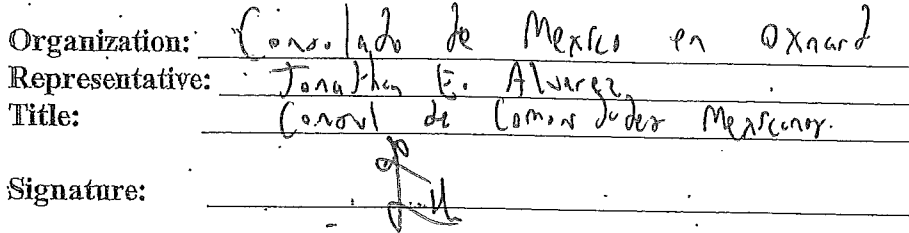 Organization: Consolado de Mexico en Oxnard
Representative: Jonathan E. Alvarez
Title: Consul de Comunidades Mexicanas.
Signature: